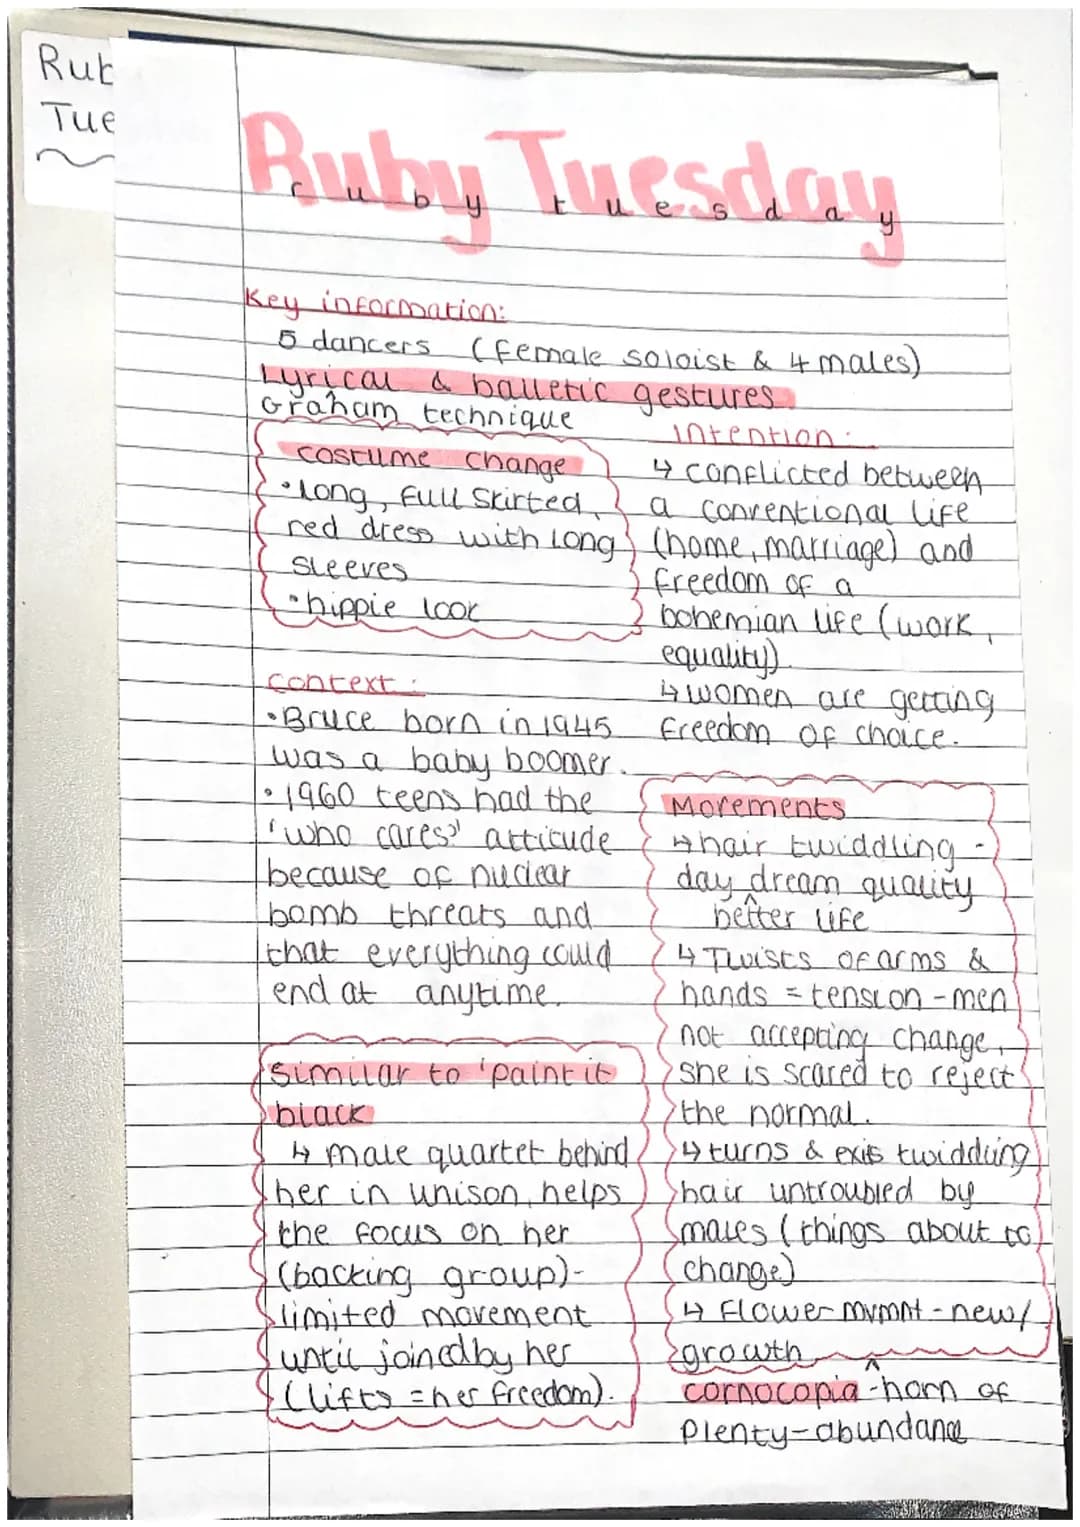 Rub
Tue
Ruby Tuesday
ruby tuesday
Key information:
5 dancers (female soloist & 4 males)
Lyrical & balletic gestures
Graham technique
costume change
• Long, full skirted,
red dress with long
sleeves
• hippie look
context:
• Bruce born in 1945
was a baby boomer.
• 1960 teens had the
'who cares' attitude
because of nuclear
bomb threats and
that everything could
end at anytime.
similar to 'paint it
black
↳ male quartet behind
her in unison, helps
the focus on her
(backing group)-
limited movement
until joined by her
(lifts = her freedom).
Intention:
↳ conflicted between
a conventional life
(home, marriage) and
freedom of a
bohemian life (work,
equality)
↳ women are getting
freedom of choice.
Movements
↳ hair twiddling -
day dream quality
^
better life
↳ Twists of arms &
hands = tension - men
not accepting change,
she is scared to reject
the normal.
↳ turns & exits twiddling
hair untroubled by
males (things about to
change)
↳ Flower mvmnt - new/
growth
^
cornocopia - horn of
plenty - abundance